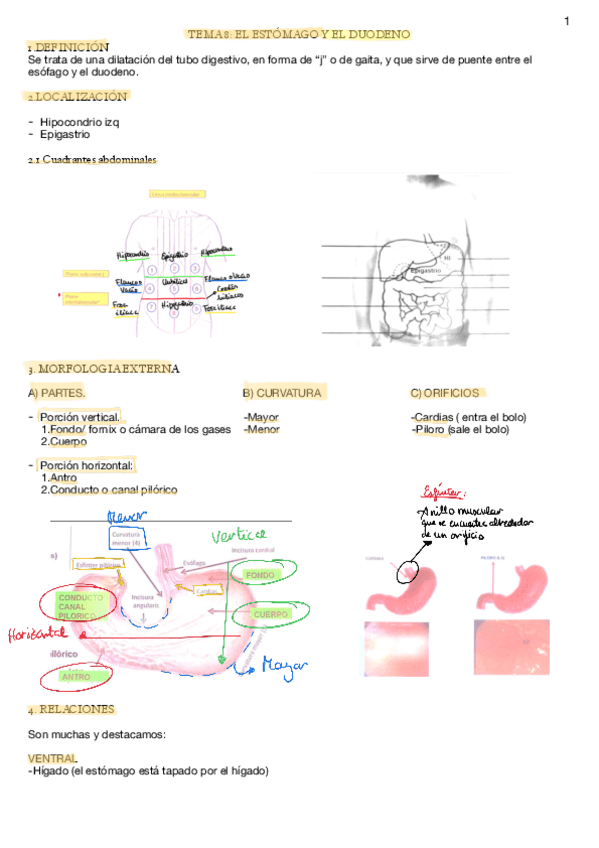 1
TEMA 8: EL ESTÓMAGO Y EL DUODENO
1. DEFINICIÓN
Se trata de una dilatación del tubo digestivo, en forma de “j” o de gaita, y que sirve de puente entre el
esófago y el duodeno.
2.LOCALIZACIÓN
- Hipocondrio izq
- Epigastrio
2.1 Cuadrantes abdominales
Hipocondrio Epigastrio Hipocondrio
1 2 3
Flanco o Vacío Umbilical Flanco o Vacío
4 5 6
Fosa iliaca Hipogastrio Fosa iliaca
7 8 9
HI
Epigastrio
3. MORFOLOGIA EXTERNA
A) PARTES. B) CURVATURA C) ORIFICIOS
- Porción vertical. -Mayor -Cardias ( entra el bolo)
1.Fondo/ fornix o cámara de los gases -Menor -Píloro (sale el bolo)
2.Cuerpo
- Porción horizontal:
1.Antro
2.Conducto o canal pilórico
Esfínter:
Anillo muscular
que se encuentra alrededor
de un orificio
Menor
Vertical
Curvatura
menor (4)
s)
Incisura cardial
Esófago
FONDO
Cardias
CONDUCTO
CANAL
PILORICO
Incisura
angularis
CUERPO
Horizontal
pilórico
ANTRO
Mayor
4. RELACIONES
Son muchas y destacamos:
VENTRAL
-Hígado (el estómago está tapado por el hígado)